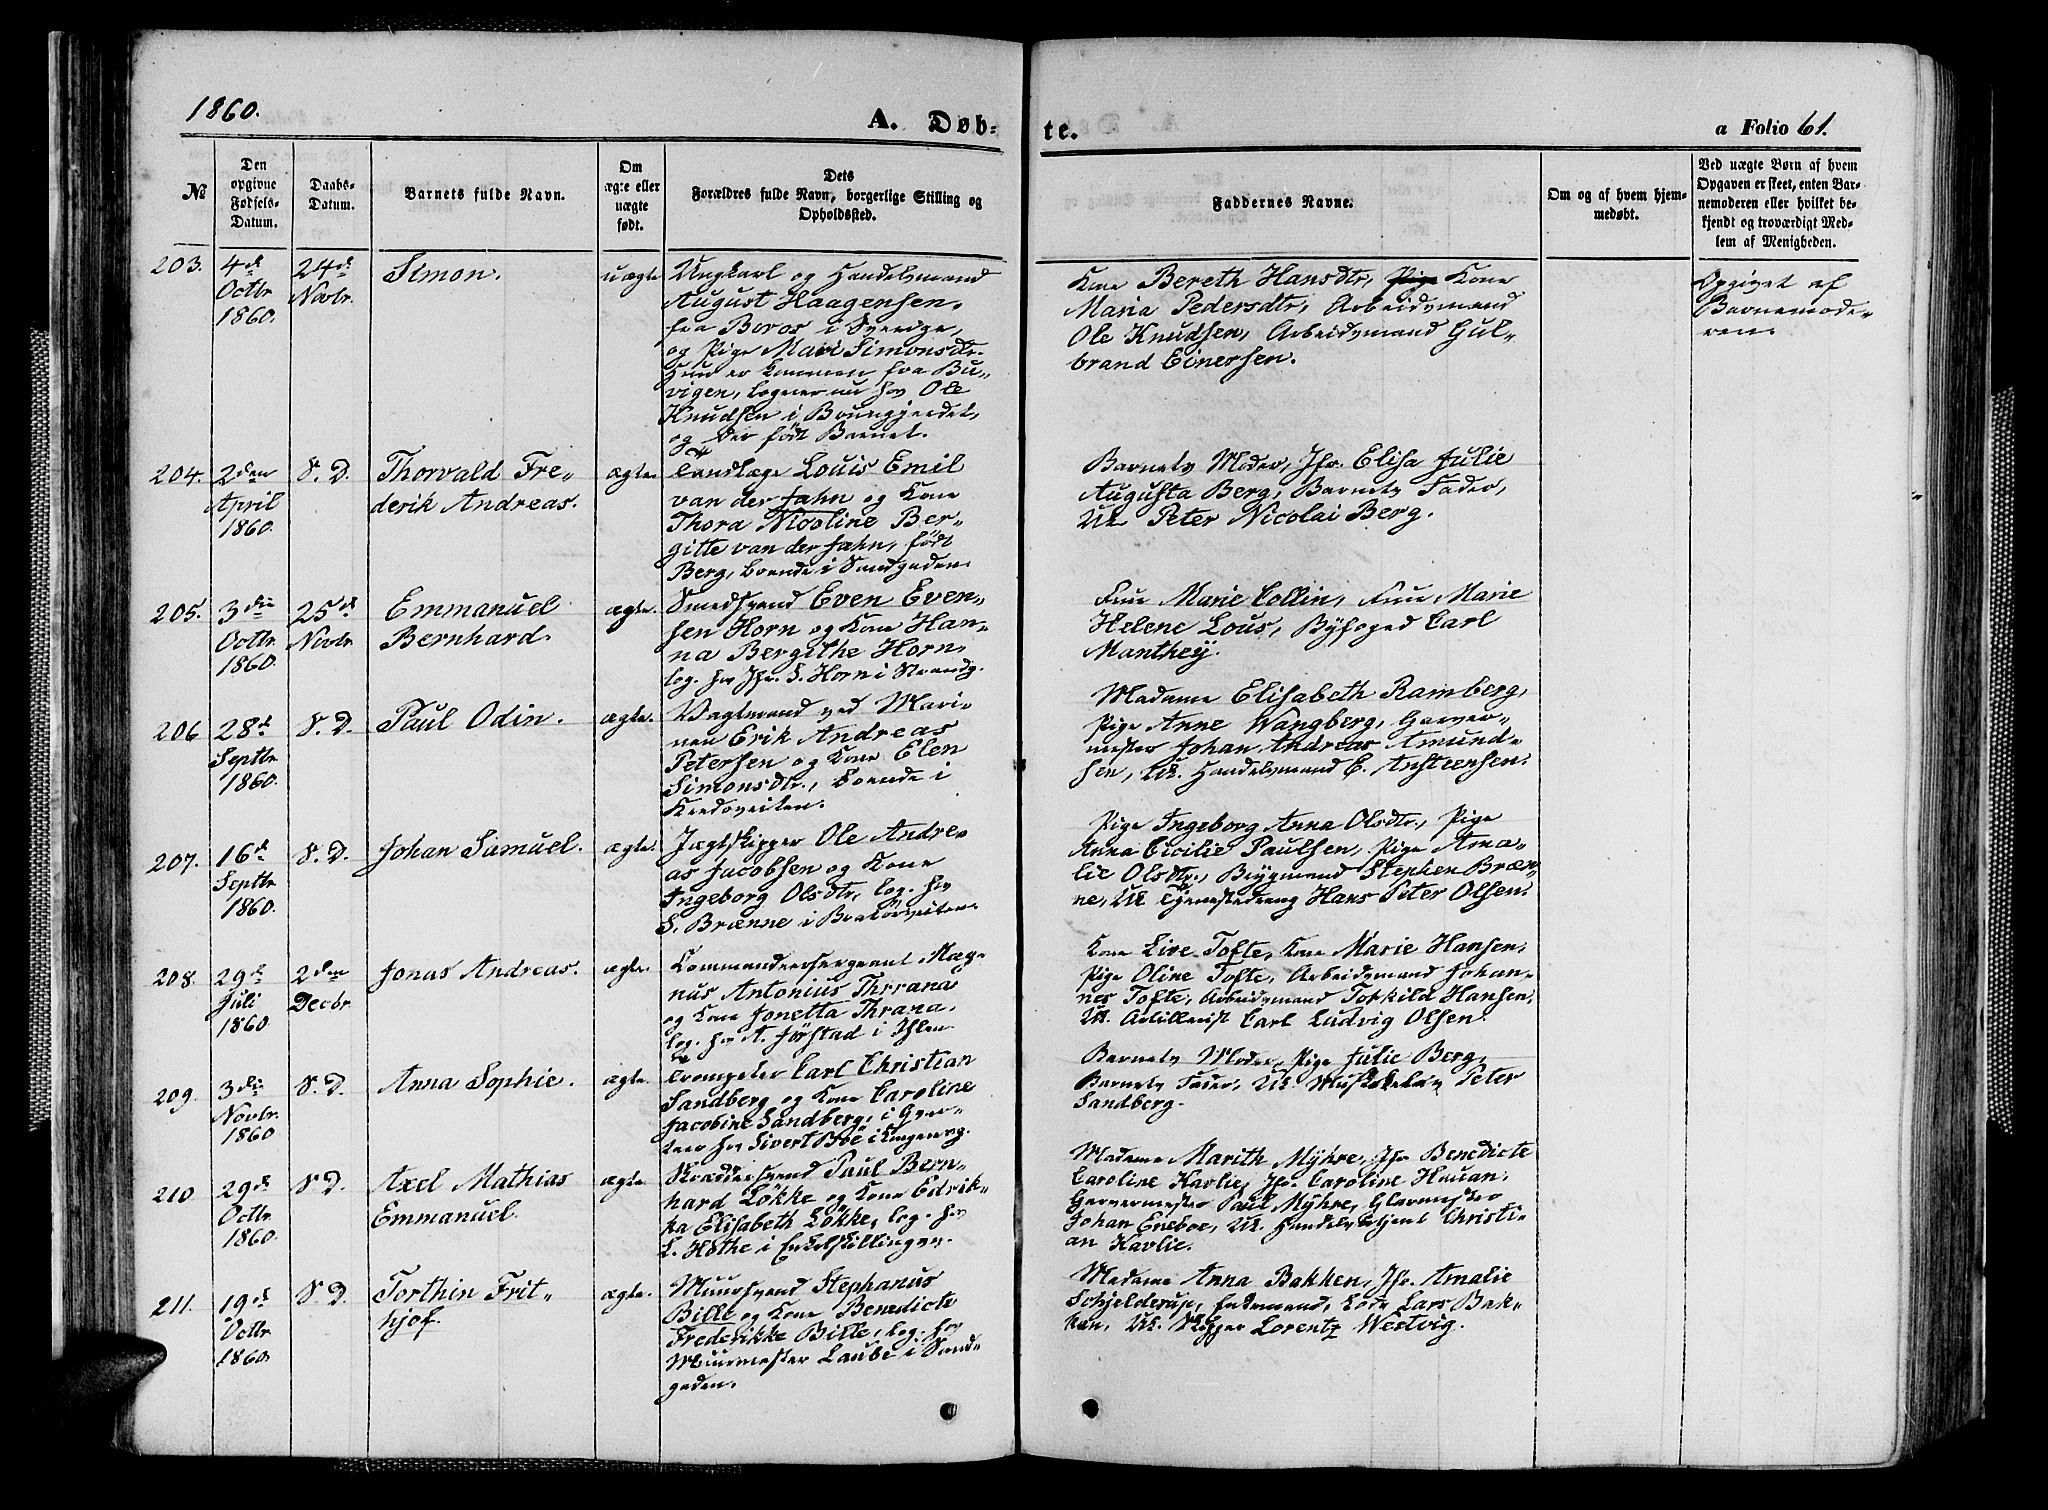 1860.
A. Døb-
te.
a Folio 61.
№
Den
opgivne
Fødsels-
Datum.
Daabs-
Datum.
Barnets fulde Navn.
Om
ægte eller
uægte
født.
Dets
Forældres fulde Navn, borgerlige Stilling og
Opholdssted.
Faddernes Navne.
Om og af hvem hjem-
medøbt.
Ved uægte Børn af hvem
Opgaven er skeet, enten Bar-
nemoderen eller hvilket be-
kjendt og troværdigt Med-
lem af Menigheden.
203.
4d
Octbr
1860.
24d
Novbr.
Simon.
uægte
Ungkarl og Handelsmand
August Haagensen,
fra Boros i Sverige,
og Pige Mari Simonsdtr.
Hun er kommen fra Bu-
vigen, logerer nu hos Ole
Knudsen i Brungjerdet,
og der født Barnet.
Kone Bereth Hansdtr, Pige Kone
Maria Pedersdtr, Arbeidsmand
Ole Knudsen, Arbeidsmand Gul-
brand Einersen.
Opgivet af
Barnemode-
ren.
204.
2den
April
1860.
S. D.
Thorvald Fre-
derik Andreas.
ægte.
Tandlæge Louis Emil
van der Jahn og Kone
Thora Nicoline Ber-
gitte van der Jahn, født
Berg, boende i Sandgaden.
Barnets Moder, Jfr. Elisa Julie
Augusta Berg, Barnets Fader,
Uk. Peter Nicolai Berg.
205.
3die
Octbr
1860.
25d
Novbr
Emmanuel
Bernhard.
ægte.
Smedsvend Even Even-
sen Horn og Kone Han-
na Bergithe Horn,
log. hos Jfr. S. Horn i Strandg.
Frue Marie Collin, Frue Marie
Helene Lous, Byfoged Carl
Manthey.
206
28d
Septbr
1860.
S. D.
Paul Odin.
ægte.
Vagtmand ved Mari-
nen Erik Andreas
Petersen og Kone Elen
Simonsdtr., boende i
Madame Elisabeth Ramberg,
Pige Anne Wangberg, Garver-
mester Johan Andreas Amund-
sen, Uk. Handelsmand E. Anstensen.
207.
16d
Septbr
1860.
S. D.
Johan Samuel.
ægte.
Jægtskipper Ole Andre-
as Jacobsen og Kone
Ingeborg Olsdtr, log. hos
S. Brænne i Bratørveiten.
Pige Ingeborg Anna Olsdtr., Pige
Anna Cicilie Paulsen, Pige Ama-
lie Olsdtr., Bygmand Stephen Bræn-
ne, Uk. Tjenestedreng Hans Peter Olsen.
208.
29d
Juli
1860.
2den
Decbr
Jonas Andreas.
ægte.
Kommandeersergeant Mag-
nus Antonius Thrrana
og Kone Jonetta Thrana,
log. hos A. Jørstad i Ihlen.
Kone Live Tofte, Kone Marie Hansen,
Pige Oline Tofte, Arbeidsmand Johan-
nes Tofte, Arbeidsmand Torkild Hansen,
Uk. Artillerist Carl Ludvig Olsen.
209.
3die
Novbr.
1860
S. D.
Anna Sophie.
ægte.
Trompeter Carl Christian
Sandberg og Kone Caroline
Jacobine Sandberg, i Qvar-
teer hos Sivert Boe i Kongensg.
Barnets Moder, Pige Julie Berg,
Barnets Fader, Uk. Musketeer Peter
Sandberg.
210
29d
Octbr
1860.
S. D.
Axel Mathias
Emmanuel.
ægte.
Skræddersvend Paul Bern-
hard Løkke og Kone Edrik-
ka Elisabeth Løkke, log. hos
L. Høthe i Enkelskillingen.
Madame Marith Myhre, Jfr. Benedicte
Caroline Kavlie, Jfr. Caroline Hauan,
Garvermester Paul Myhre, Glarmester
Johan Eneboe, Uk. Handelsbetjent Christi-
an Kavlie.
211.
19d
Octbr
1860.
S. D.
Torthin Frit-
hjof.
ægte.
Muursvend Stephanus
Bille og Kone Benedicte
Frederikke Bille, log. hos
Muurmester Laube i Sand-
gaden.
Madame Anna Bakken, Jfr. Amalie
Schjelderup, Enkemand, Lods Lars Bak-
ken, Uk. Skipper Lorentz Westvig.